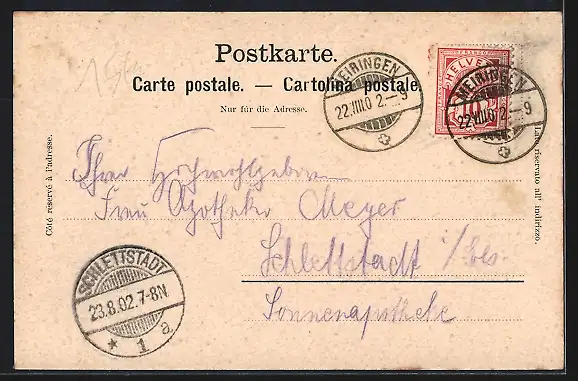 Postkarte.
Carte postale. — Cartolina postale.
Nur für die Adresse.
Côté réservé à l'adresse.
Lato riservato all' indirizzo.
MEIRINGEN
22.VIII.02.—9
FRANCO
HELVETIA
10
MEIRINGEN
22.VIII.02.—9
Ihrer Hochwohlgeboren
Frau Apotheker Meyer
Schlettstadt i/Els.
Sonnenapotheke
SCHLETTSTADT
23.8.02.7-8N.
* 1 a